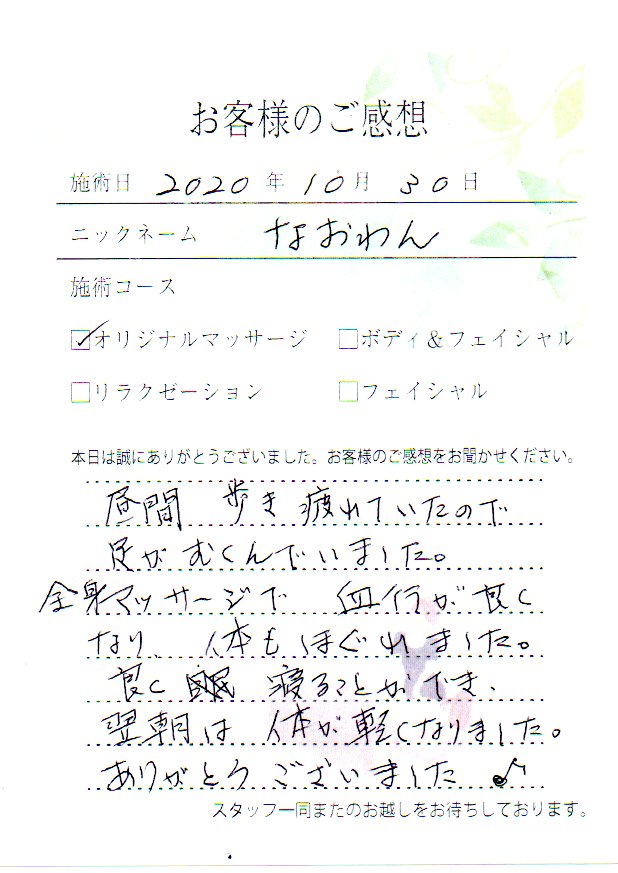 お客様のご感想
施術日 2020 年 10 月 30 日
ニックネーム なおわん
施術コース
☑オリジナルマッサージ □ボディ＆フェイシャル
□リラクゼーション □フェイシャル
本日は誠にありがとうございました。お客様のご感想をお聞かせください。
昼間 歩き疲れていたので
足がむくんでいました。
全身マッサージで 血行が良く
なり、体もほぐれました。
良く 寝ることができ、
翌朝は 体が軽くなりました。
ありがとうございました♪
スタッフ一同またのお越しをお待ちしております。